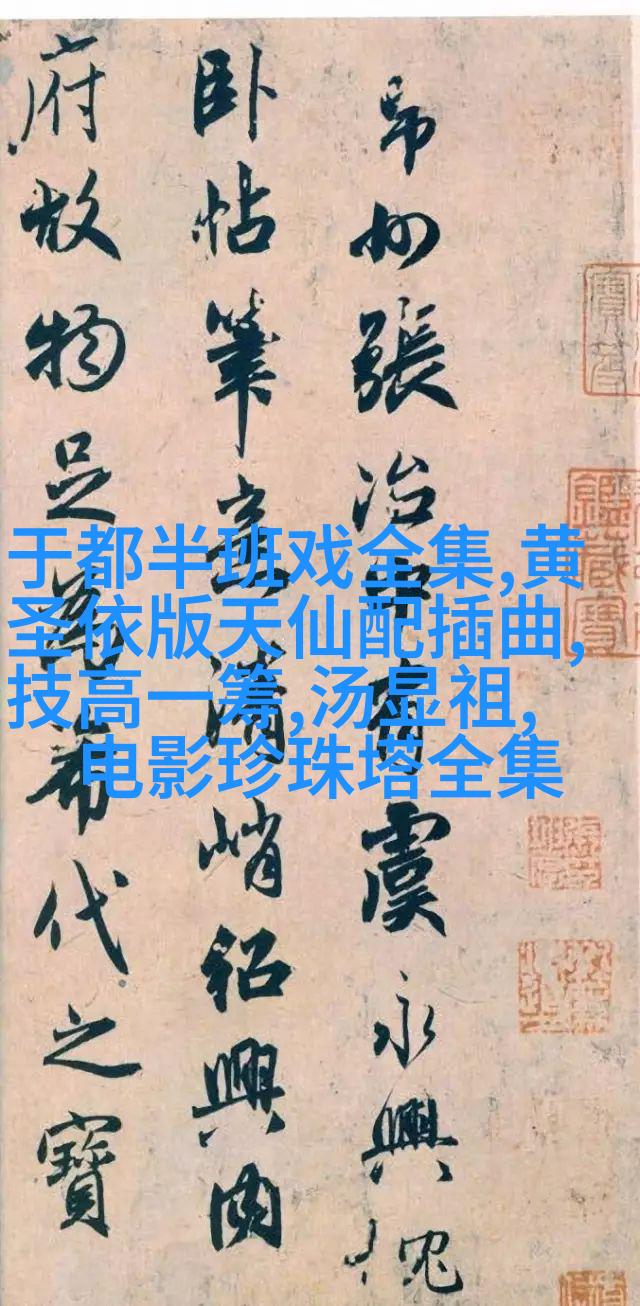 張治中有虞永興愧
臥帖筆意清峭紹興內
府故物足為希代之寶
于都半班戏全集,黄
圣依版天仙配插曲,
技高一筹,汤显祖,
电影珍珠塔全集